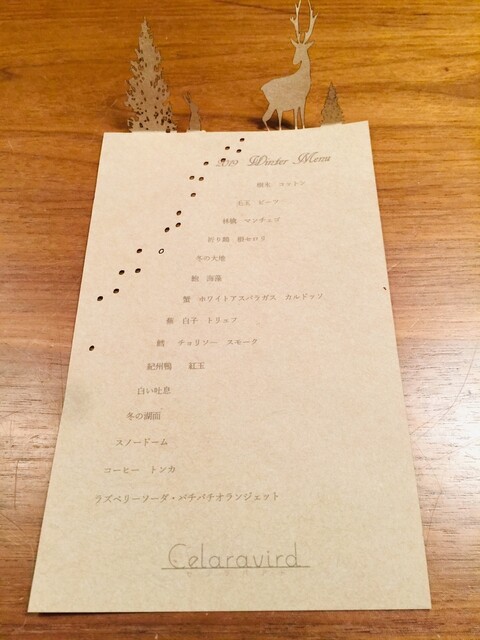 2019 Winter Menu
樹氷 コットン
毛玉 ビーツ
林檎 マンチェゴ
折り鶴 根セロリ
冬の大地
鮑 海藻
蟹 ホワイトアスパラガス カルドッソ
蕪 白子 トリュフ
鱈 チョリソー スモーク
紀州鴨 紅玉
白い吐息
冬の湖面
スノードーム
コーヒー トンカ
ラズベリーソーダ・パチパチオランジェット
Celaravird